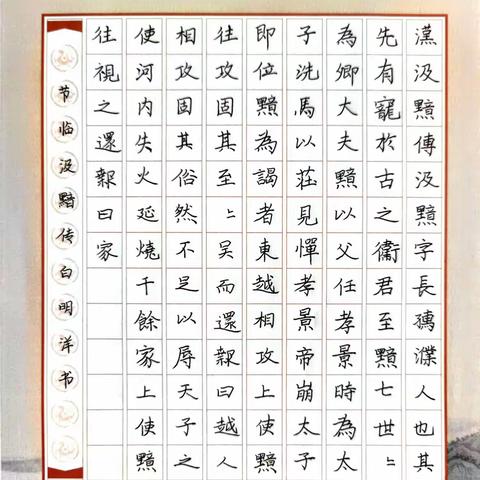 漢汲黯傳汲黯字長孺濮人也其
先有寵於古之衛君至黯七世〻
為卿大夫黯以父任孝景時為太
子洗馬以莊見憚孝景帝崩太子
即位黯為謁者東越相攻上使黯
往攻固其至〻吴而還報曰越人
相攻固其俗然不足以辱天子之
使河内失火延燒千餘家上使黯
往視之還報曰家
节临汲黯传白明洋书